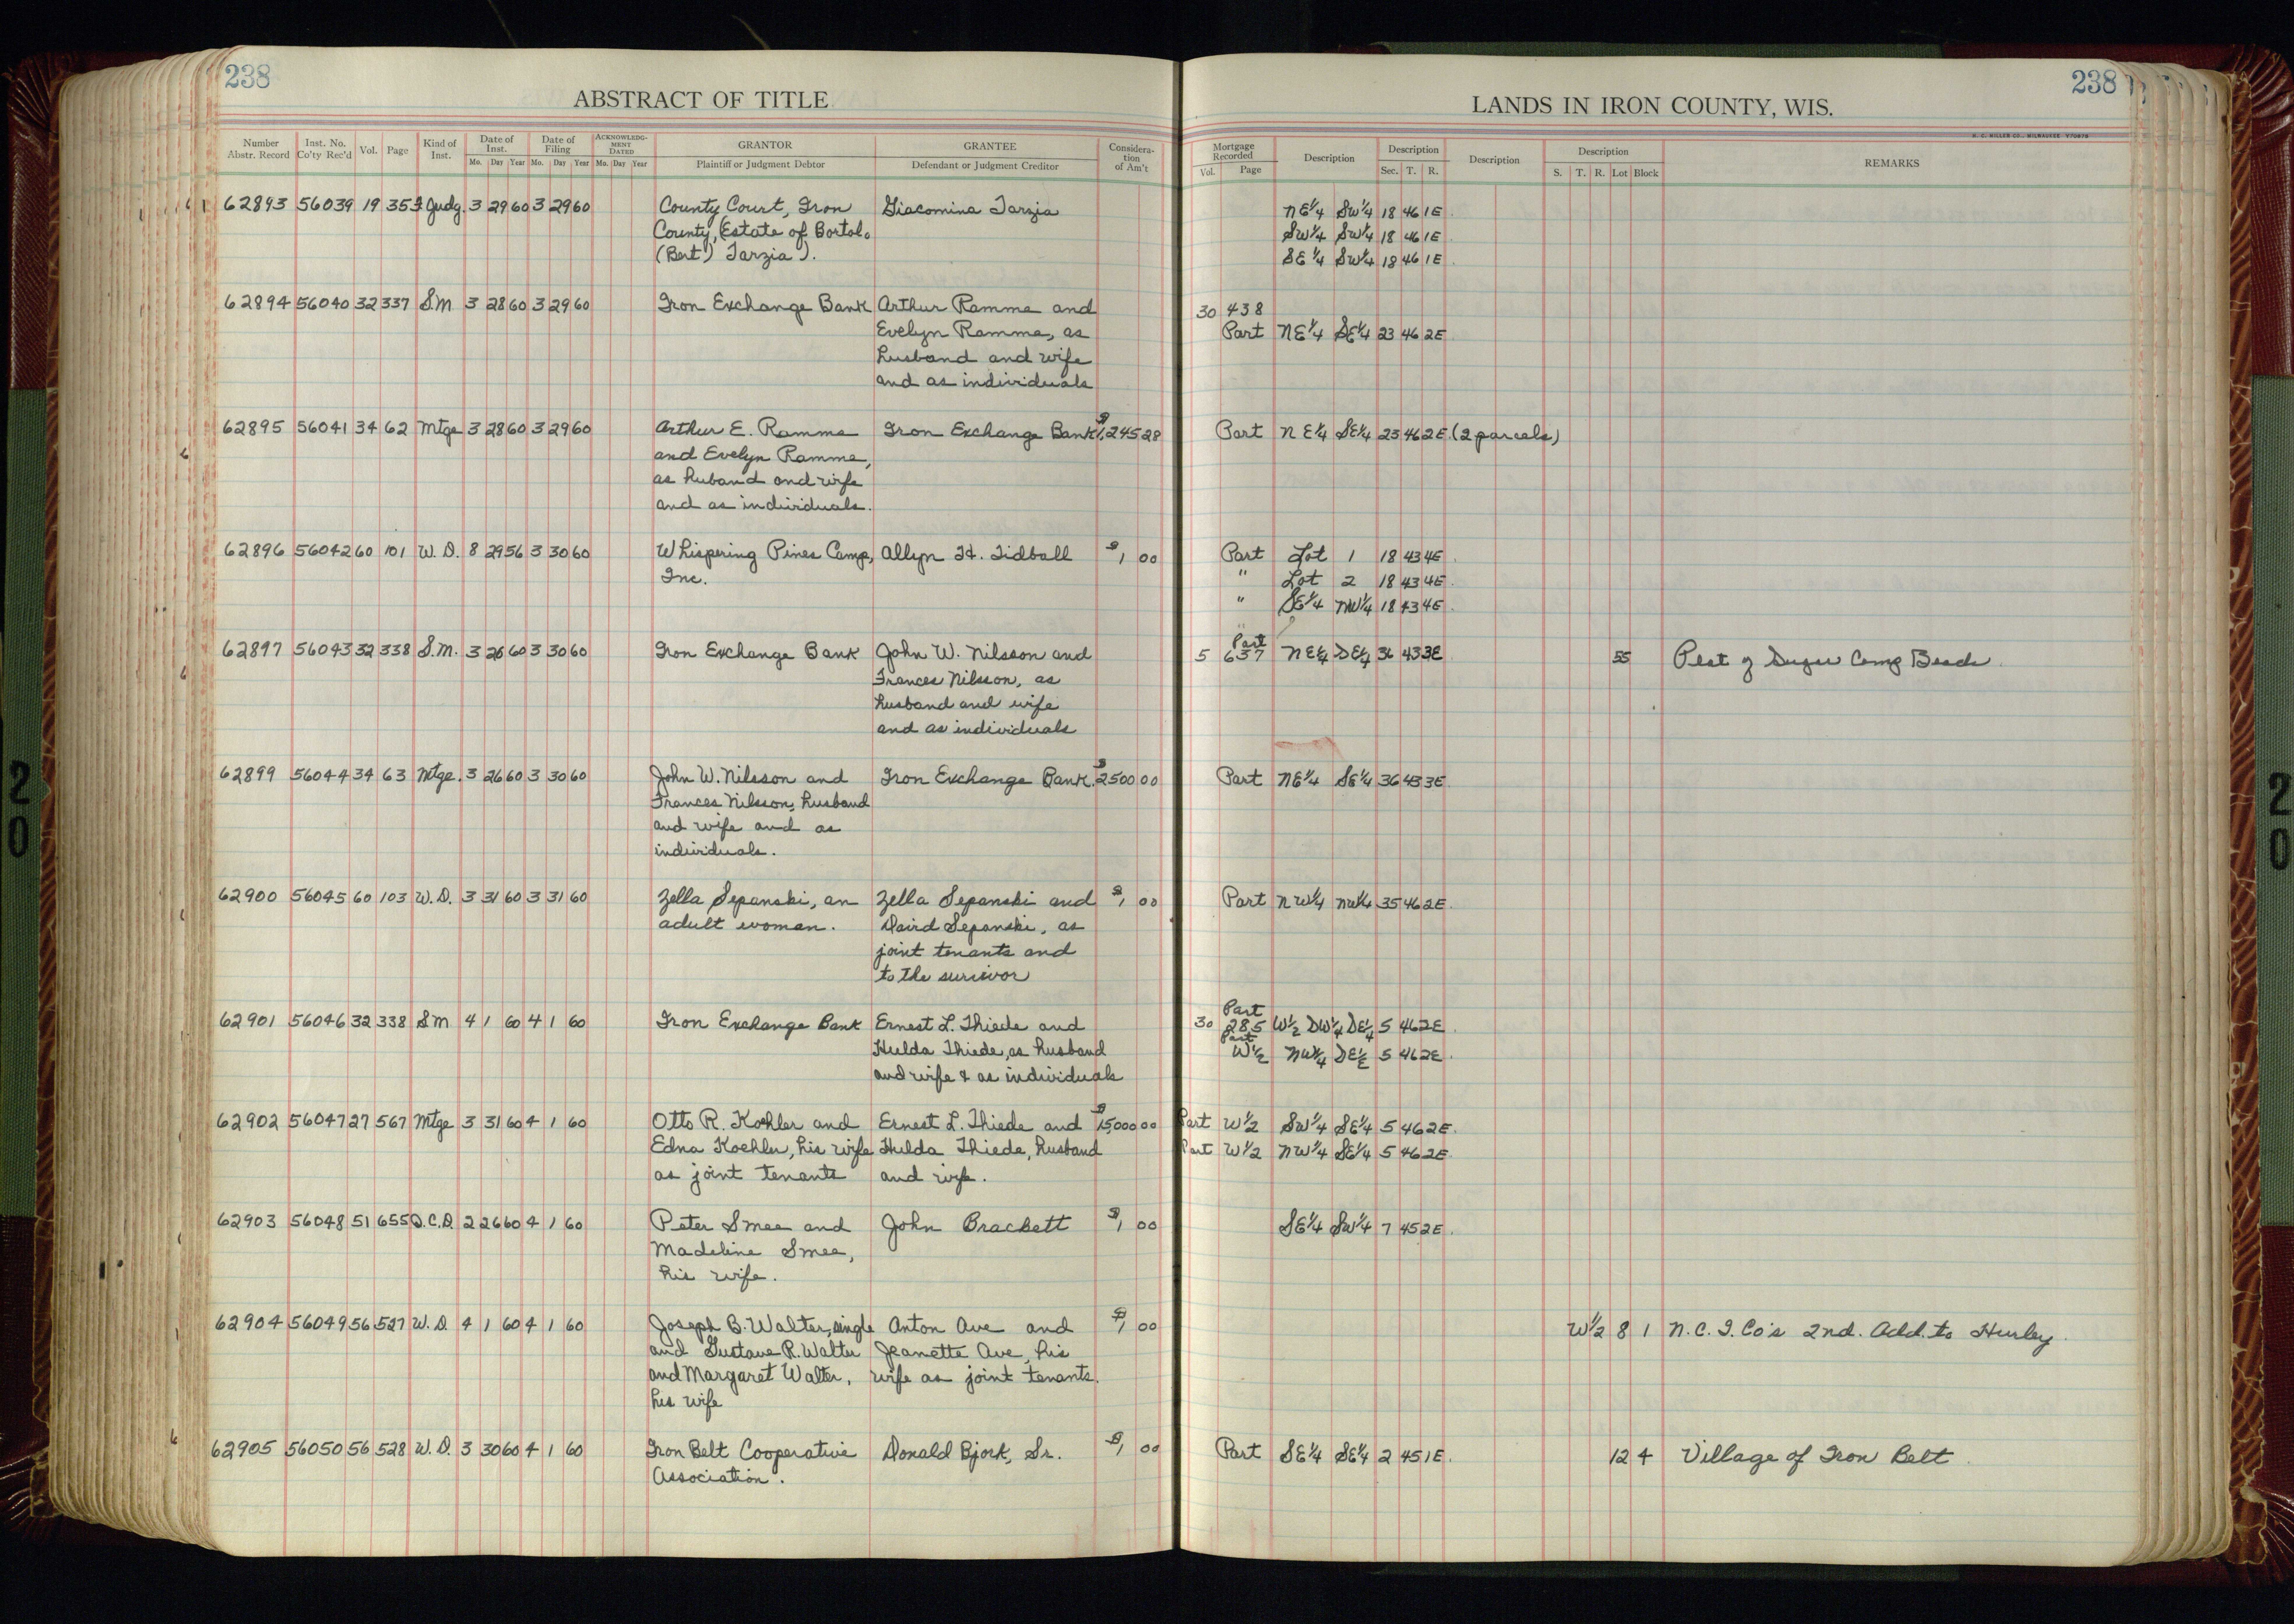 238
ABSTRACT OF TITLE
Number Abstr. Record | Inst. No. Co'ty Rec'd | Vol. | Page | Kind of Inst. | Date of Inst. Mo. Day Year | Date of Filing Mo. Day Year | ACKNOWLEDGMENT DATED Mo. Day Year | GRANTOR Plaintiff or Judgment Debtor | GRANTEE Defendant or Judgment Creditor | Consideration of Am't
62893 56039 19 353 Judg. 3 29 60 3 29 60 County Court, Iron Giacomina Tarzia
County, (Estate of Bortolo
(Bert) Tarzia).
62894 56040 32 337 S.M 3 28 60 3 29 60 Iron Exchange Bank Arthur Ramme and
Evelyn Ramme, as
husband and wife
and as individuals
62895 56041 34 62 Mtge 3 28 60 3 29 60 Arthur E. Ramme Iron Exchange Bank $1,245 28
and Evelyn Ramme,
as huband and wife
and as individuals.
62896 56042 60 101 W. D. 8 29 56 3 30 60 Whispering Pines Camp, Allyn H. Tidball $1 00
Inc.
62897 56043 32 338 S.M. 3 26 60 3 30 60 Iron Exchange Bank John W. Nilsson and
Frances Nilsson, as
husband and wife
and as individuals
62899 56044 34 63 Mtge. 3 26 60 3 30 60 John W. Nilsson and Iron Exchange Bank. $2500 00
Frances Nilsson, husband
and wife and as
individuals.
62900 56045 60 103 W. D. 3 31 60 3 31 60 Zella Sepanski, an Zella Sepanski and $1 00
adult woman. David Sepanski, as
joint tenants and
to the survivor
62901 56046 32 338 S M 4 1 60 4 1 60 Iron Exchange Bank Ernest L. Thiede and
Hulda Thiede, as husband
and wife & as individuals
62902 56047 27 567 Mtge 3 31 60 4 1 60 Otto R. Koehler and Ernest L. Thiede and $15,000 00
Edna Koehler, his wife Hulda Thiede, husband
as joint tenants and wife.
62903 56048 51 655 Q.C.D. 2 26 60 4 1 60 Peter Smee and John Brackett $1 00
Madeline Smee,
his wife.
62904 56049 56 527 W. D. 4 1 60 4 1 60 Joseph B. Walter, single Anton Ave and $1 00
and Gustave R. Walter Jeanette Ave, his
and Margaret Walter, wife as joint tenants.
his wife
62905 56050 56 528 W. D. 3 30 60 4 1 60 Iron Belt Cooperative Donald Bjork, Sr. $1 00
Association.
238
LANDS IN IRON COUNTY, WIS.
H. C. MILLER CO., MILWAUKEE
Mortgage Recorded Vol. Page | Description | Description Sec. T. R. | Description | Description S. T. R. Lot Block | REMARKS
NE1/4 SW1/4 18 46 1E
SW1/4 SW1/4 18 46 1E
SE1/4 SW1/4 18 46 1E
30 438
Part NE1/4 SE1/4 23 46 2E
Part NE1/4 SE1/4 23 46 2E (2 parcels)
Part Lot 1 18 43 4E
" Lot 2 18 43 4E
" SE1/4 NW1/4 18 43 4E
Part
5 637 NE1/4 SE1/4 36 43 3E 55 Plat of Sugar Camp Beach
Part NE1/4 SE1/4 36 43 3E
Part NW1/4 NW1/4 35 46 2E
Part
30 285 W1/2 SW1/4 SE1/4 5 46 2E
Part
W1/2 NW1/4 SE1/2 5 46 2E
Part W1/2 SW1/4 SE1/4 5 46 2E
Part W1/2 NW1/4 SE1/4 5 46 2E
SE1/4 SW1/4 7 45 2E
W1/2 8 1 N.C.I. Co's 2nd. Add. to Hurley
Part SE1/4 SE1/4 2 45 1E 12 4 Village of Iron Belt
20
20